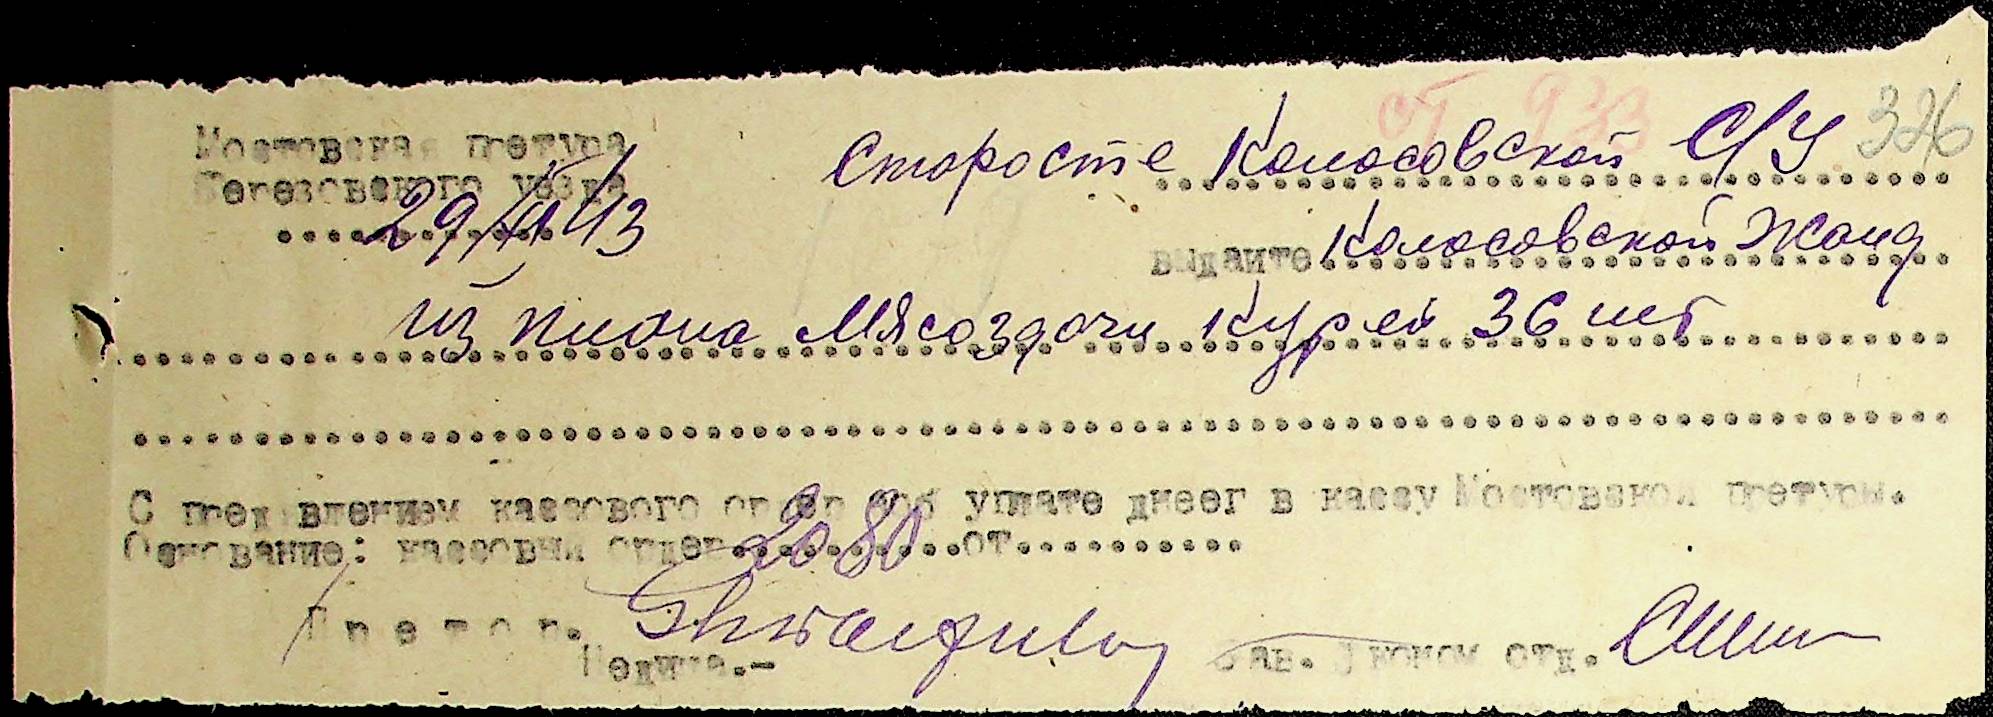 от 933
326
Мостовская претура
Березовского уезда
29/XI 43
Старосте Колосовской С/У
выдайте Колосовской Жанд
из плана Мясоздачи Курей 36 шт
С пред влением кассового ордер об уплате днеег в кассу Мостовской претуры.
Основание: кассовый ордер 2080 от
Претор.
Зав. Эконом отд.